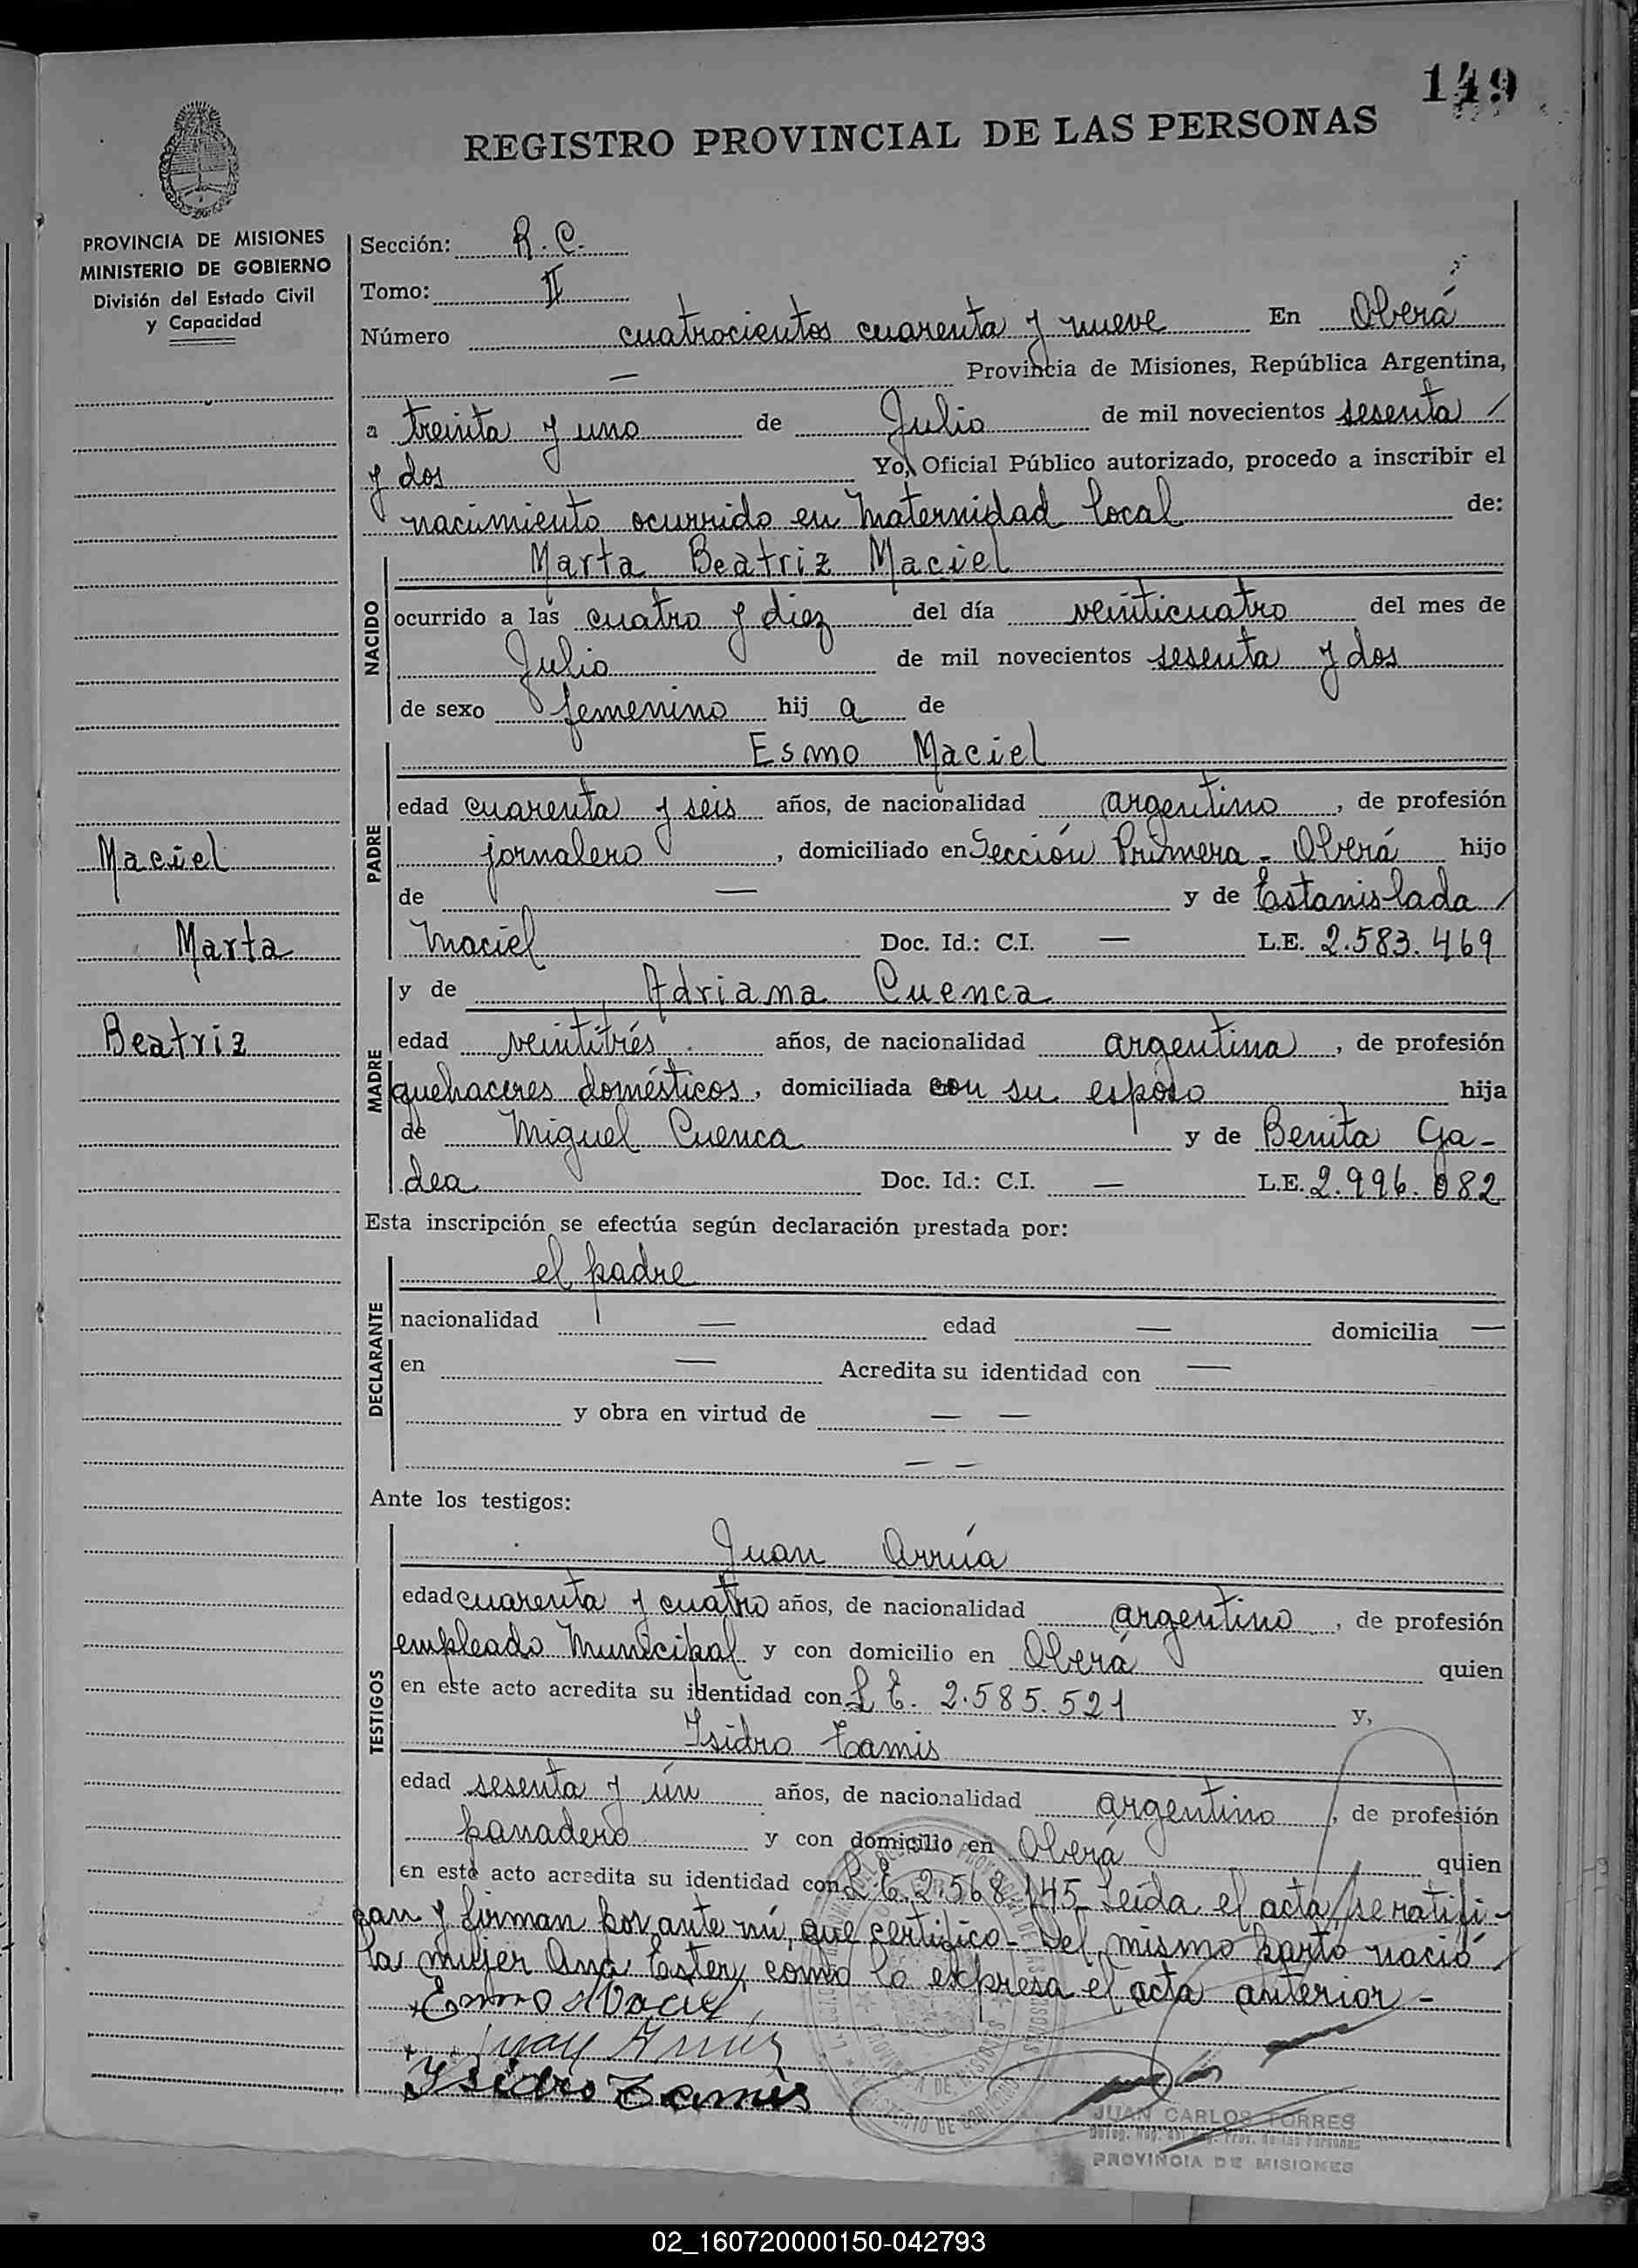 149
REGISTRO PROVINCIAL DE LAS PERSONAS
PROVINCIA DE MISIONES
MINISTERIO DE GOBIERNO
División del Estado Civil
y Capacidad
Maciel
Marta
Beatriz
Sección: R. C.
Tomo: II
Número cuatrocientos cuarenta y nueve En Oberá
— Provincia de Misiones, República Argentina,
a treinta y uno de Julio de mil novecientos sesenta /
y dos Yo, Oficial Público autorizado, procedo a inscribir el
nacimiento ocurrido en Maternidad Local de:
NACIDO
Marta Beatriz Maciel
ocurrido a las cuatro y diez del día veinticuatro del mes de
Julio de mil novecientos sesenta y dos
de sexo femenino hij a de
PADRE
Esmo Maciel
edad cuarenta y seis años, de nacionalidad argentino, de profesión
jornalero, domiciliado en Sección Primera - Oberá hijo
de — y de Estanislada /
Maciel Doc. Id.: C.I. — L.E. 2.583.469
MADRE
y de Adriana Cuenca
edad veintitrés años, de nacionalidad argentina, de profesión
quehaceres domésticos, domiciliada con su esposo hija
de Miguel Cuenca y de Benita Ga-
dea Doc. Id.: C.I. — L.E. 2.996.082
Esta inscripción se efectúa según declaración prestada por:
DECLARANTE
el padre
nacionalidad — edad — domicilia —
en — Acredita su identidad con —
y obra en virtud de — —
— —
Ante los testigos:
TESTIGOS
Juan Arrúa
edad cuarenta y cuatro años, de nacionalidad argentino, de profesión
empleado Municipal y con domicilio en Oberá quien
en este acto acredita su identidad con L E. 2.585.521 y,
Isidro Tamis
edad sesenta y ún años, de nacionalidad argentino, de profesión
panadero y con domicilio en Oberá quien
en este acto acredita su identidad con L.E. 2.568.145 Leída el acta, se ratifi-
can y firman por ante mí, que certifico - Del mismo parto nació /
la mujer Ana Ester, como lo expresa el acta anterior -
Esmo Maciel
Juan Arrúa
Isidro Tamis
JUAN CARLOS TORRES
PROVINCIA DE MISIONES
02_160720000150-042793